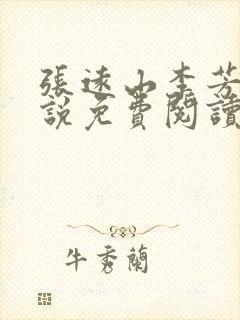 張遠山李芳
說免費閱讀
牛秀蘭